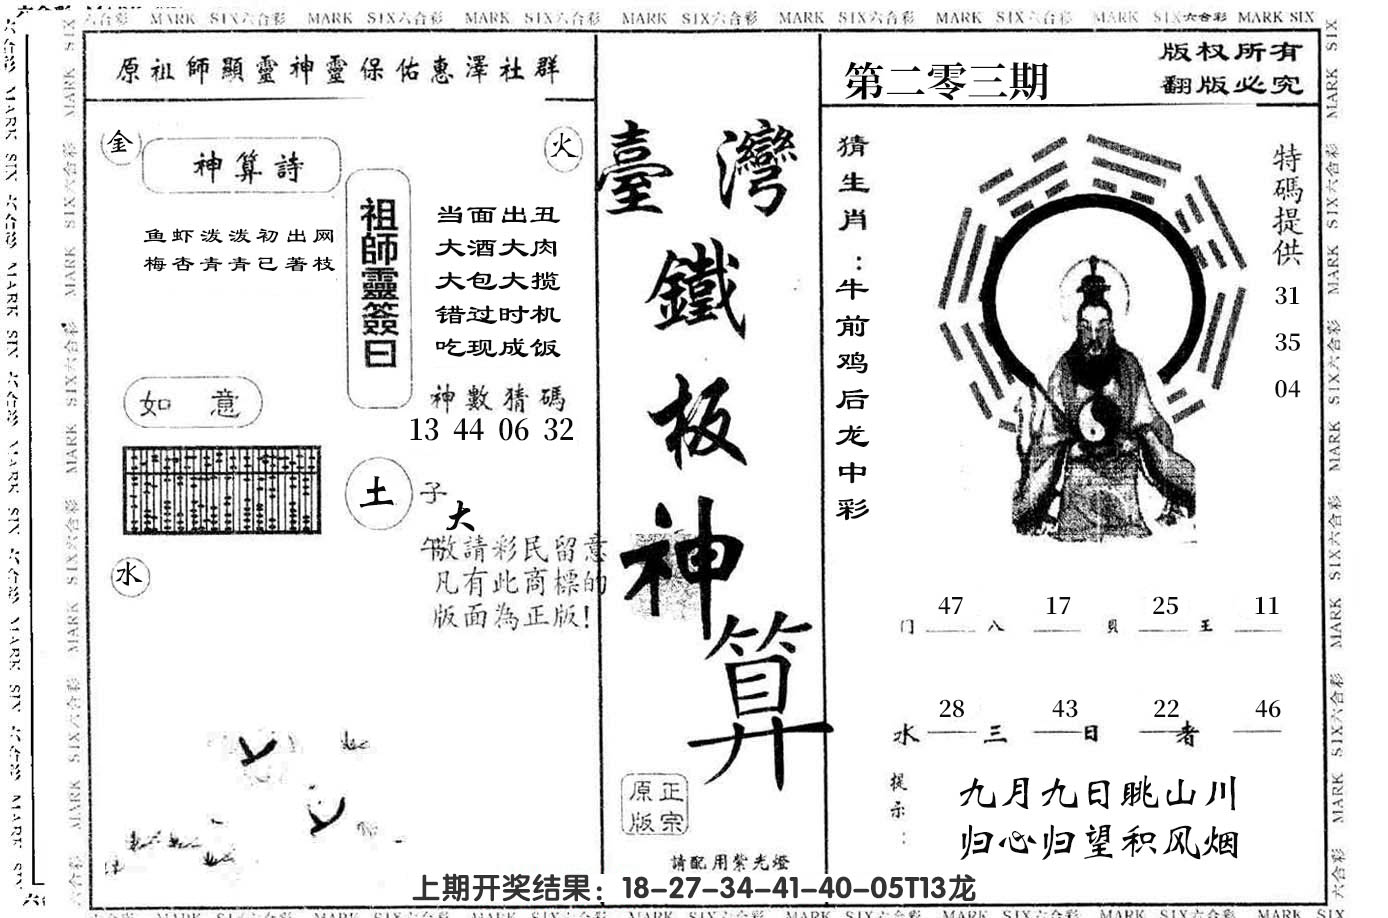 MARK SIX六合彩 MARK SIX六合彩 MARK SIX六合彩 MARK SIX六合彩 MARK SIX六合彩 MARK SIX六合彩 MARK SIX六合彩 MARK SIX
原祖師顯靈神靈保佑惠澤社群
金
火
神算詩
鱼虾泼泼初出网
梅杏青青已著枝
祖師靈簽曰
当面出丑
大酒大肉
大包大揽
错过时机
吃现成饭
神數猜碼
13 44 06 32
如意
土
子
大
午
水
敬請彩民留意
凡有此商標的
版面為正版!
臺灣
鐵
板
神
算
正宗
原版
請配用紫光燈
第二零三期
版权所有
翻版必究
猜生肖:牛前鸡后龙中彩
特碼提供
31
35
04
47 17 25 11
门 八 貝 王
28 43 22 46
水 三 日 者
提示:
九月九日眺山川
归心归望积风烟
上期开奖结果：18-27-34-41-40-05T13龙